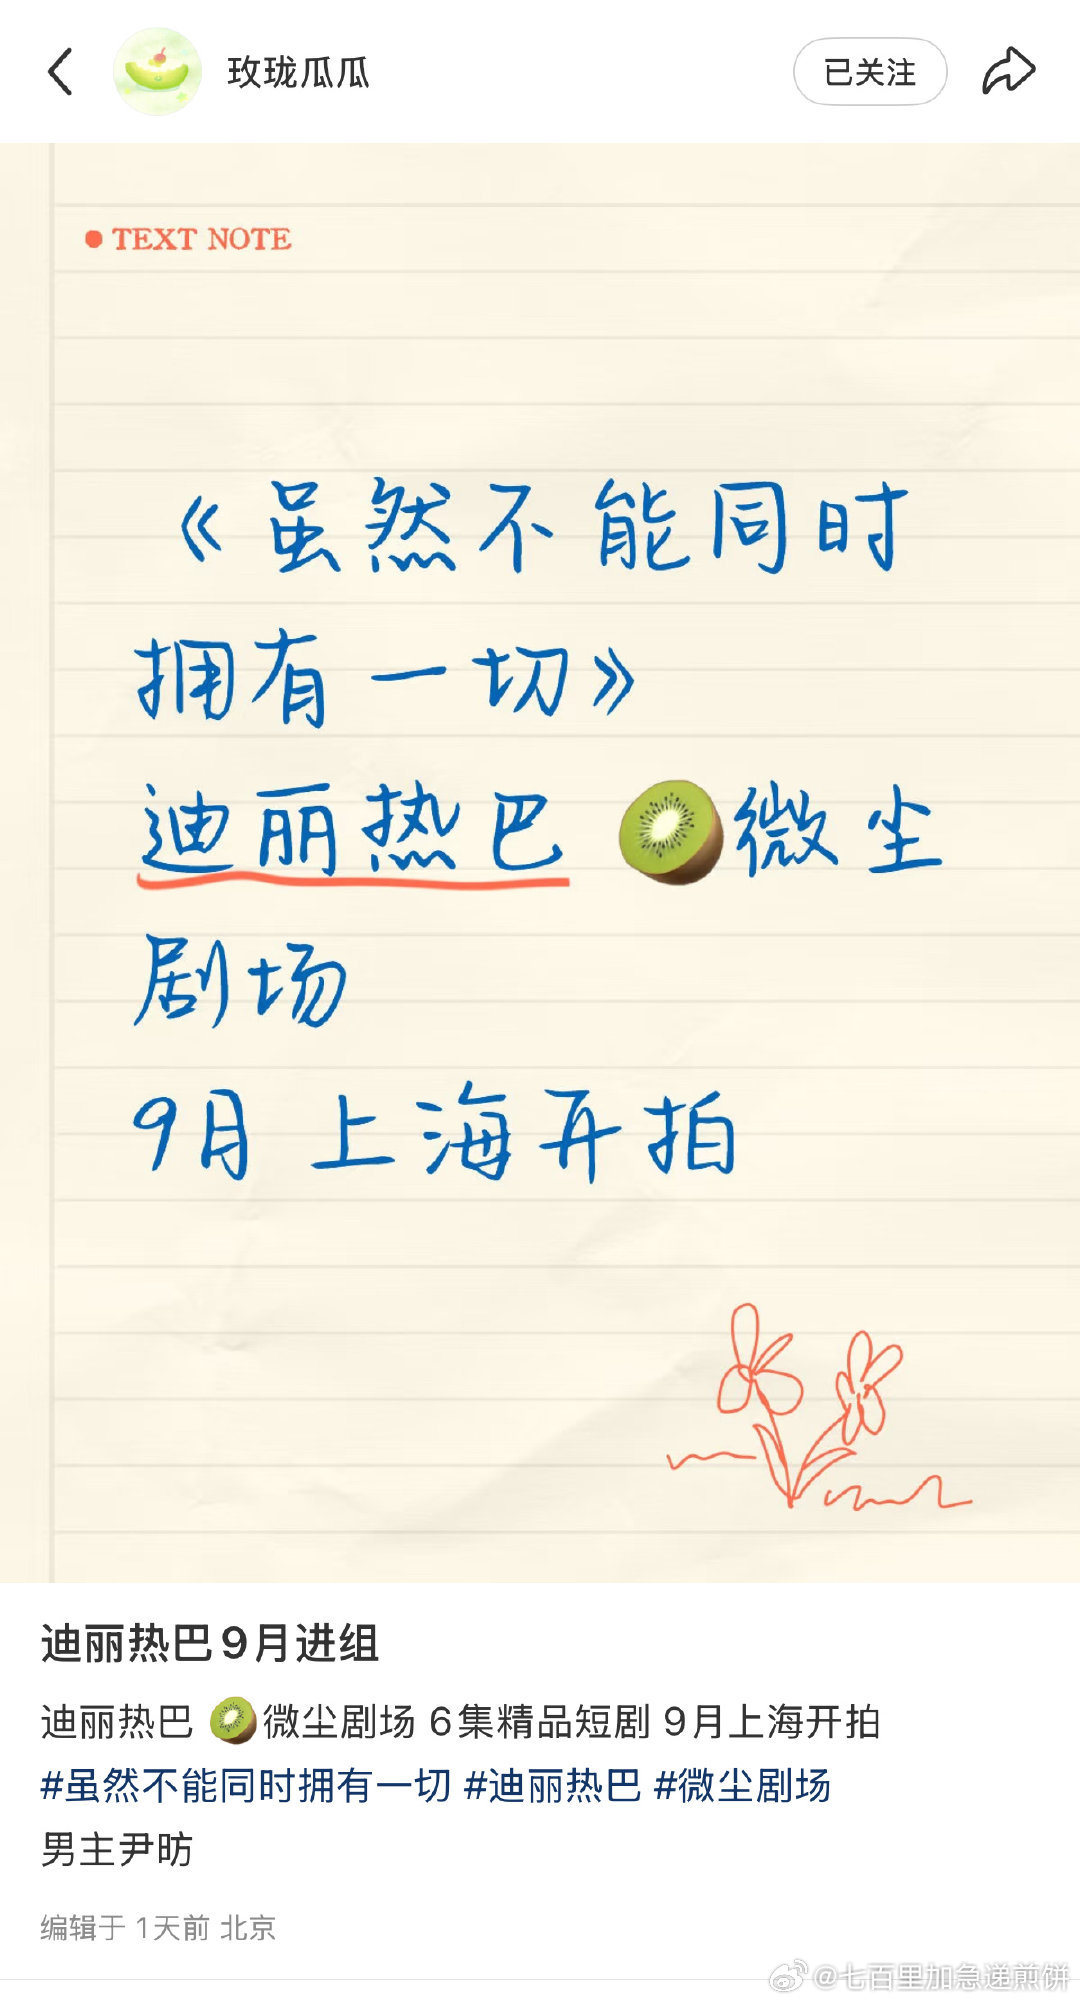 玫珑瓜瓜
已关注
TEXT NOTE
《虽然不能同时
拥有一切》
迪丽热巴 🥝微尘
剧场
9月 上海开拍
迪丽热巴9月进组
迪丽热巴 🥝微尘剧场 6集精品短剧 9月上海开拍
#虽然不能同时拥有一切 #迪丽热巴 #微尘剧场
男主尹昉
编辑于 1天前 北京
@七百里加急递煎饼